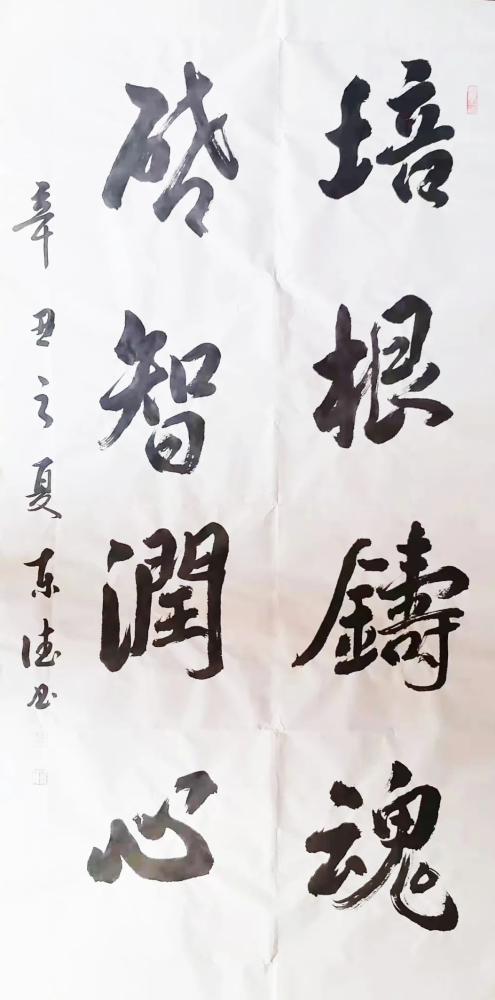 培根鑄魂
启智潤心
辛丑之夏东德书